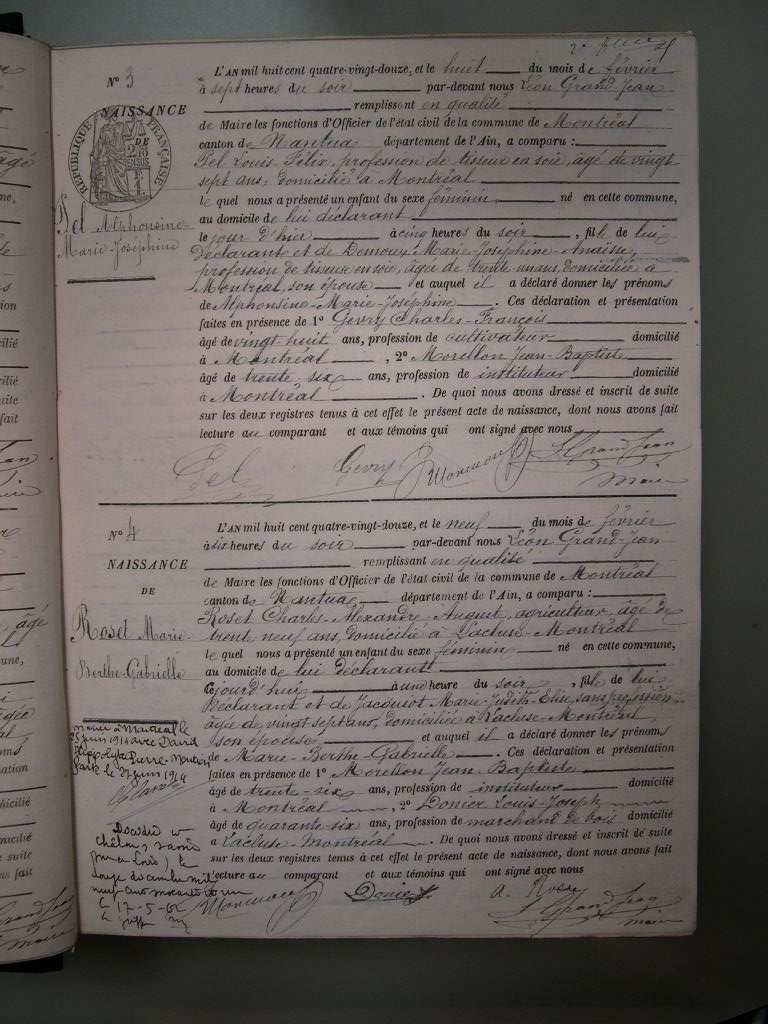 N° 3
NAISSANCE
RÉPUBLIQUE FRANÇAISE
DE
Pel Alphonsine-
Marie-Joséphine
L'AN mil huit cent quatre-vingt-douze, et le huit du mois de février
à sept heures du soir par-devant nous Léon Grand-Jean
remplissant en qualité
de Maire les fonctions d'Officier de l'état civil de la commune de Montréal
canton de Nantua département de l'Ain, a comparu :
Pel Louis Félix, profession de tisseur en soie, âgé de vingt
sept ans, domicilié à Montréal
le quel nous a présenté un enfant du sexe féminin né en cette commune,
au domicile de lui déclarant
le jour d'hier à cinq heures du soir, fille de lui
Déclarant et de Marie-Joséphine-Anaïsse,
profession de tisseur en soie, âgée de trente-un ans, domiciliée à
Montréal, son épouse et auquel il a déclaré donner les prénoms
de Alphonsine-Marie-Joséphine. Ces déclaration et présentation
faites en présence de 1° Gevry Charles-François
âgé de vingt-huit ans, profession de cultivateur domicilié
à Montréal, 2° Morellon Jean-Baptiste
âgé de trente-six ans, profession de instituteur domicilié
à Montréal. De quoi nous avons dressé et inscrit de suite
sur les deux registres tenus à cet effet le présent acte de naissance, dont nous avons fait
lecture au comparant et aux témoins qui ont signé avec nous
Pel Gevry L Grand Jean
maire
N° 4
NAISSANCE
DE
Roset Marie-
Berthe-Gabrielle
L'AN mil huit cent quatre-vingt-douze, et le neuf du mois de février
à six heures du soir par-devant nous Léon Grand-Jean
remplissant en qualité
de Maire les fonctions d'Officier de l'état civil de la commune de Montréal
canton de Nantua département de l'Ain, a comparu :
Roset Charles-Alexandre August, agriculteur, âgé de
trent neuf ans, domicilié à Lacluse-Montréal
le quel nous a présenté un enfant du sexe féminin né en cette commune,
au domicile de lui déclarant
Ce jourd'hui à une heure du soir, fille de lui
Déclarant et de Jacquiot Marie-Judith-Elise, sans profession,
âgée de vingt sept ans, domiciliée à Lacluse-Montréal,
son épouse et auquel il a déclaré donner les prénoms
de Marie-Berthe-Gabrielle. Ces déclaration et présentation
faites en présence de 1° Morellon Jean-Baptiste
âgé de trente-six ans, profession de instituteur domicilié
à Montréal, 2° Donier Louis-Joseph
âgé de quarante-six ans, profession de marchand de bois domicilié
à Lacluse-Montréal. De quoi nous avons dressé et inscrit de suite
sur les deux registres tenus à cet effet le présent acte de naissance, dont nous avons fait
Lecture au comparant et aux témoins qui ont signé avec nous
Donier A. Roset
L Grand Jean
maire
Montréal le
juin 1914 avec David
Hippolyte Pierre
le 27 juin 1914
Décédée
Chalon s/Saône
le
le 17-5-62